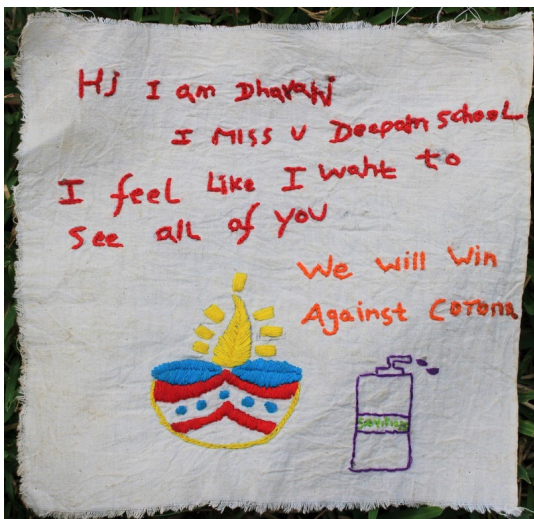 Hi I am Dharani
I MISS U Deepam School
I feel Like I want to
See all of you
We will win
Against Corona